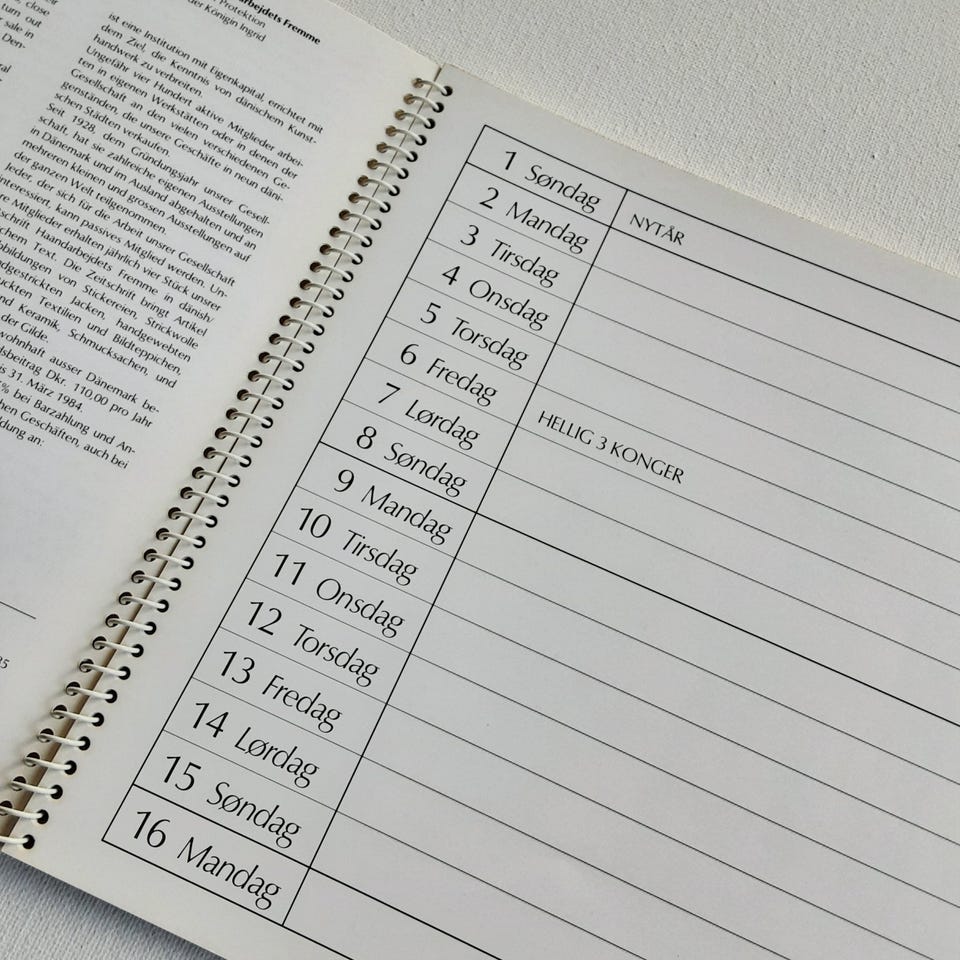 close
turn out
sale in
Den-
arbejdets Fremme
Protektion
der Königin Ingrid
ist eine Institution mit Eigenkapital, errichtet mit
dem Ziel, die Kenntnis von dänischem Kunst-
handwerk zu verbreiten.
Ungefähr vier Hundert aktive Mitglieder arbei-
ten in eigenen Werkstätten oder in denen der
Gesellschaft an den vielen verschiedenen Ge-
genständen, die unsere Geschäfte in neun däni-
schen Städten verkaufen.
Seit 1928, dem Gründungsjahr unsrer Gesell-
schaft, hat sie zahlreiche eigenen Ausstellungen
in Dänemark und im Ausland abgehalten und an
mehreren kleinen und grossen Ausstellungen auf
der ganzen Welt teilgenommen.
Jeder, der sich für die Arbeit unsrer Gesellschaft
interessiert, kann passives Mitglied werden. Un-
re Mitglieder erhalten jährlich vier Stück unsrer
schrift Haandarbejdets Fremme in dänish-
chem Text. Die Zeitschrift bringt Artikel
bbildungen von Stickereien, Strickwolle
ndgestrickten Jacken, handgewebten
uckten Textilien und Bildteppichen,
nd Keramik, Schmucksachen, und
der Gilde.
wohnhaft ausser Dänemark be-
dsbeitrag Dkr. 110,00 pro Jahr
is 31. März 1984.
% bei Barzahlung und An-
hen Geschäften, auch bei
ldung an:
1 Søndag NYTÅR
2 Mandag
3 Tirsdag
4 Onsdag
5 Torsdag
6 Fredag HELLIG 3 KONGER
7 Lørdag
8 Søndag
9 Mandag
10 Tirsdag
11 Onsdag
12 Torsdag
13 Fredag
14 Lørdag
15 Søndag
16 Mandag